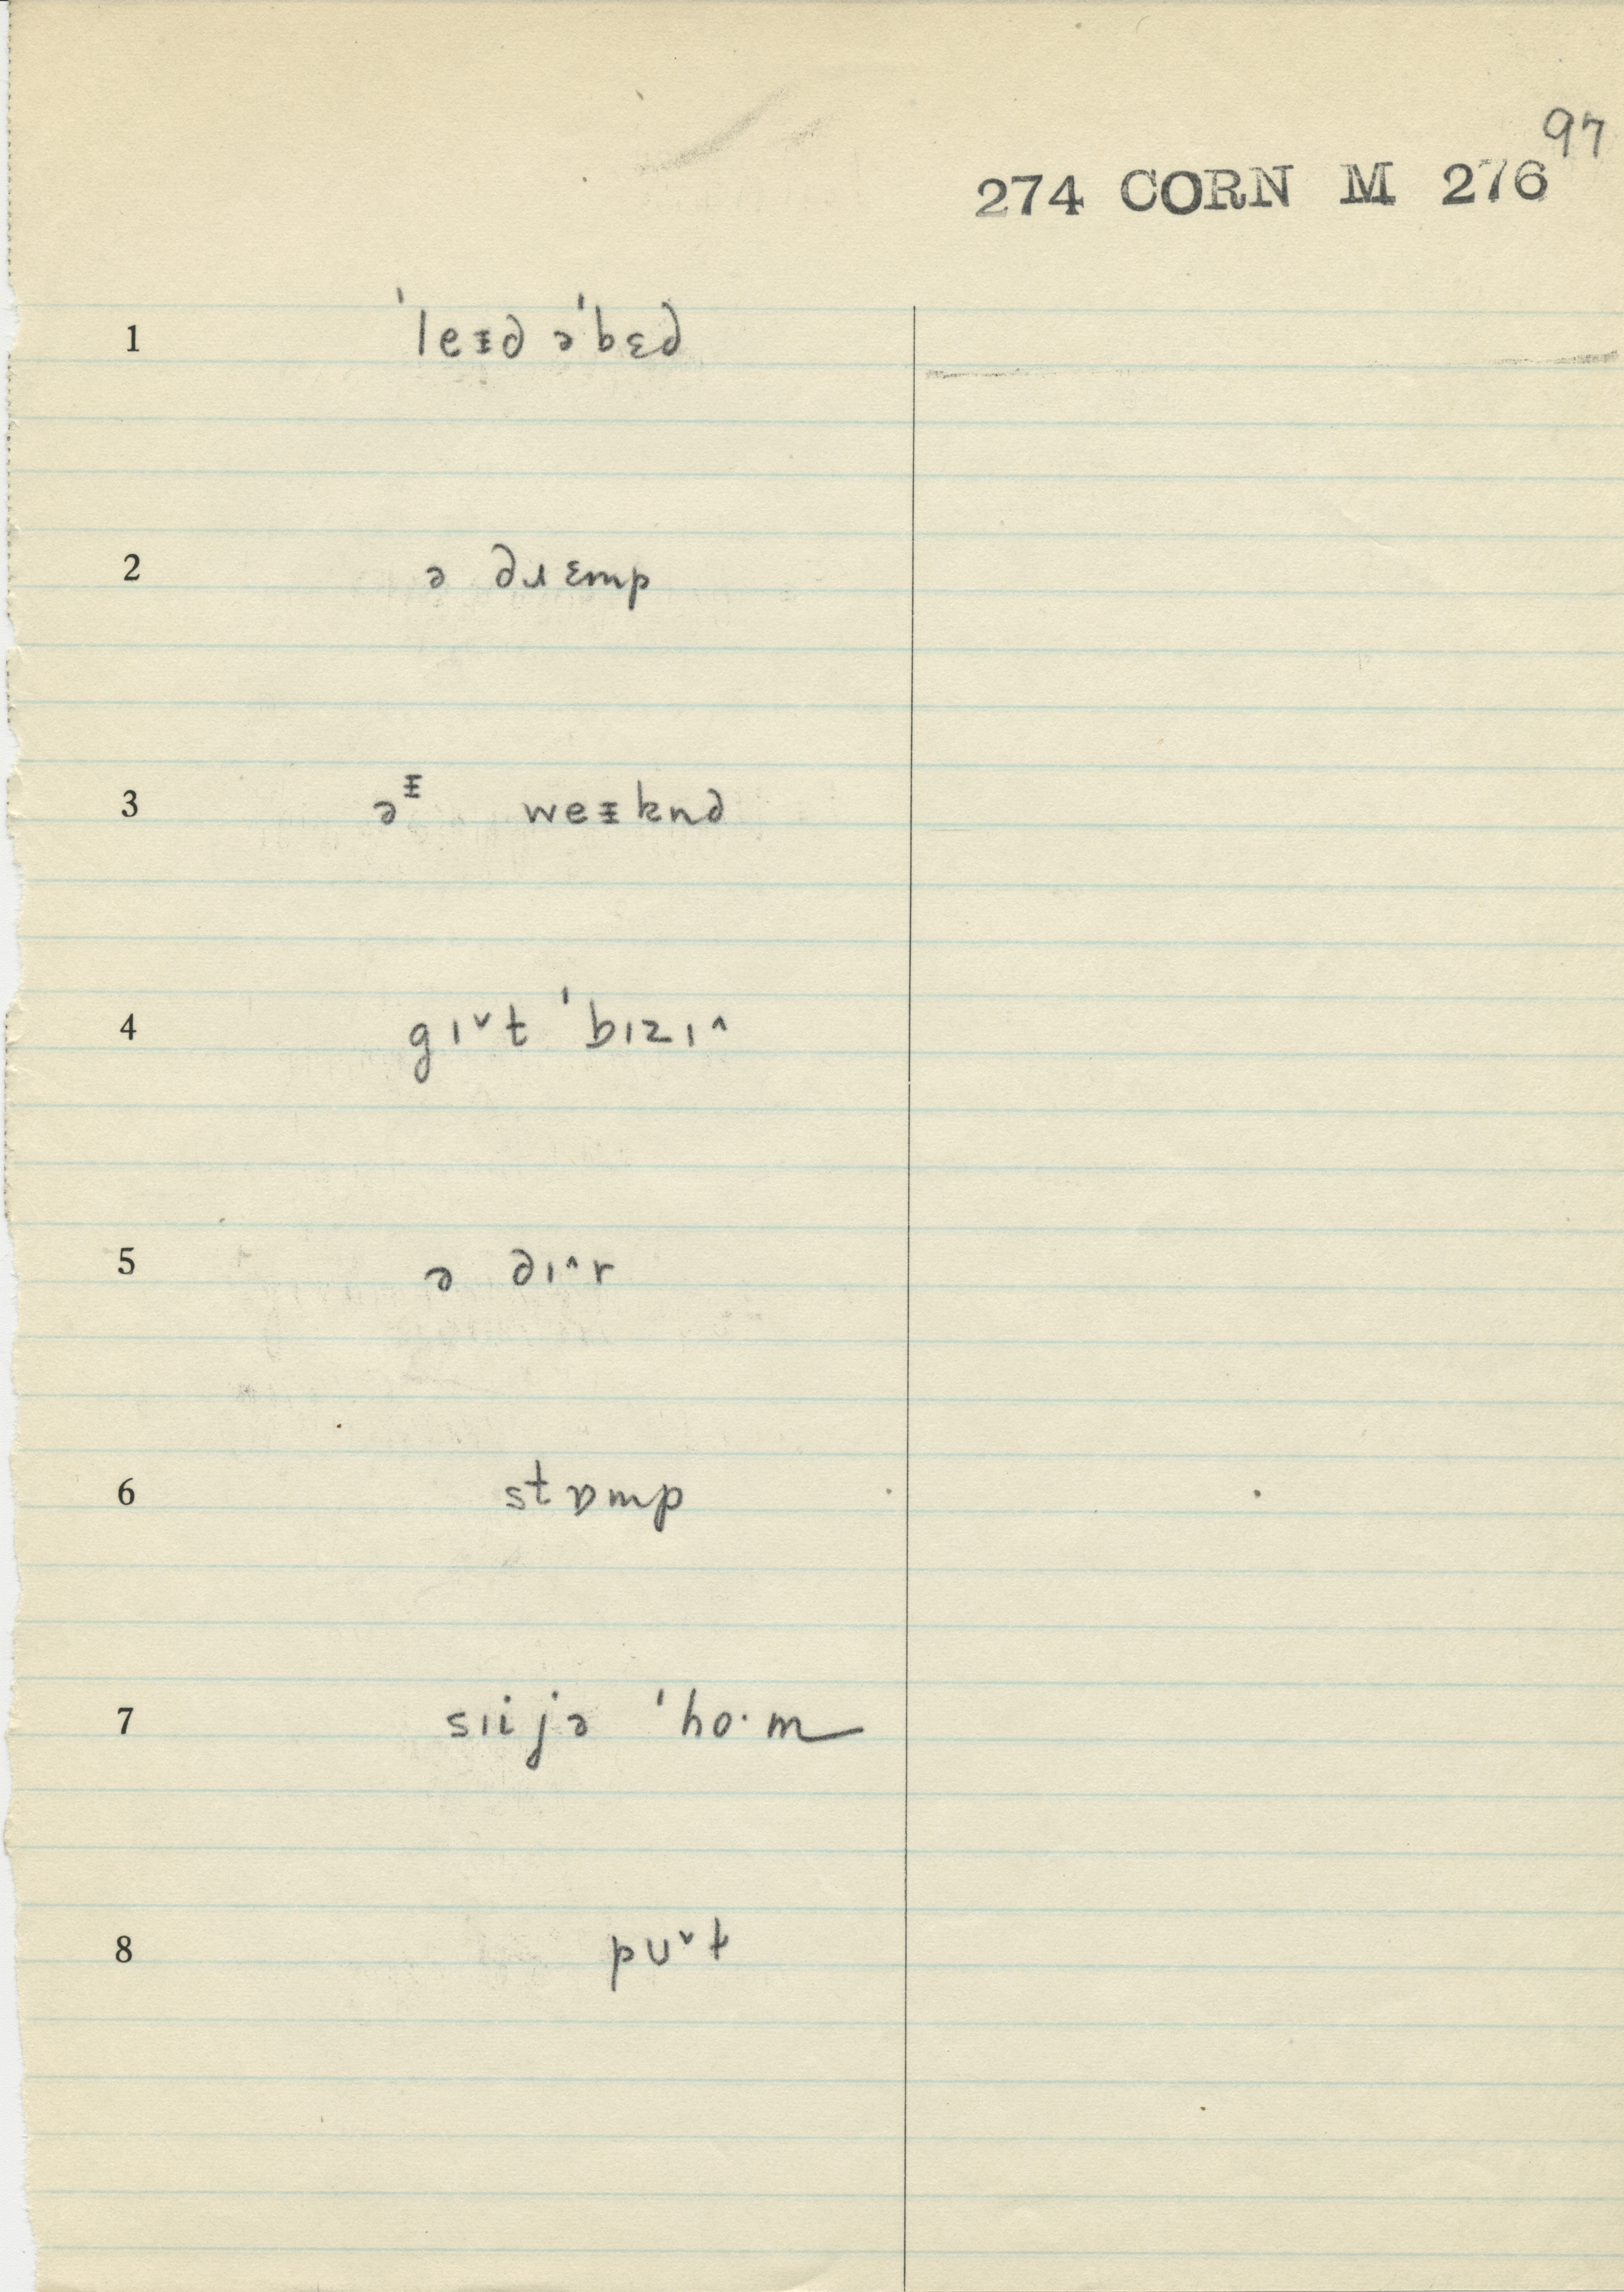 97
274 CORN M 276
1 ˈleᵻd əˈbɛd
2 ə dɹɛmp
3 əᵻ weᵻknd
4 gɪ˅t ˈbɪzɪ˄
5 ə dɪ˄r
6 stɒmp
7 sɪijə ˈho·m
8 pʊ˅t